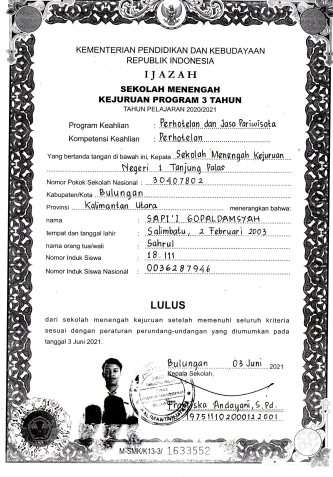 KEMENTERIAN PENDIDIKAN DAN KEBUDAYAAN
REPUBLIK INDONESIA
IJAZAH
SEKOLAH MENENGAH
KEJURUAN PROGRAM 3 TAHUN
TAHUN PELAJARAN 2020/2021
Program Keahlian : Perhotelan dan Jasa Pariwisata
Kompetensi Keahlian : Perhotelan
Yang bertanda tangan di bawah ini, Kepala Sekolah Menengah Kejuruan
Negeri 1 Tanjung Palas
Nomor Pokok Sekolah Nasional : 30407802
Kabupaten/Kota Bulungan
Provinsi Kalimantan Utara menerangkan bahwa:
nama : SAPI'I GOPALDAMSYAH
tempat dan tanggal lahir : Salimbatu, 2 Februari 2003
nama orang tua/wali : Sahrul
Nomor Induk Siswa : 18.111
Nomor Induk Siswa Nasional : 0036287946
LULUS
dari sekolah menengah kejuruan setelah memenuhi seluruh kriteria
sesuai dengan peraturan perundang-undangan yang diumumkan pada
tanggal 3 Juni 2021.
Bulungan 03 Juni 2021
Kepala Sekolah,
Andayani, S.Pd.
197511102000122001
M-SMK/K13-3/ 1633552